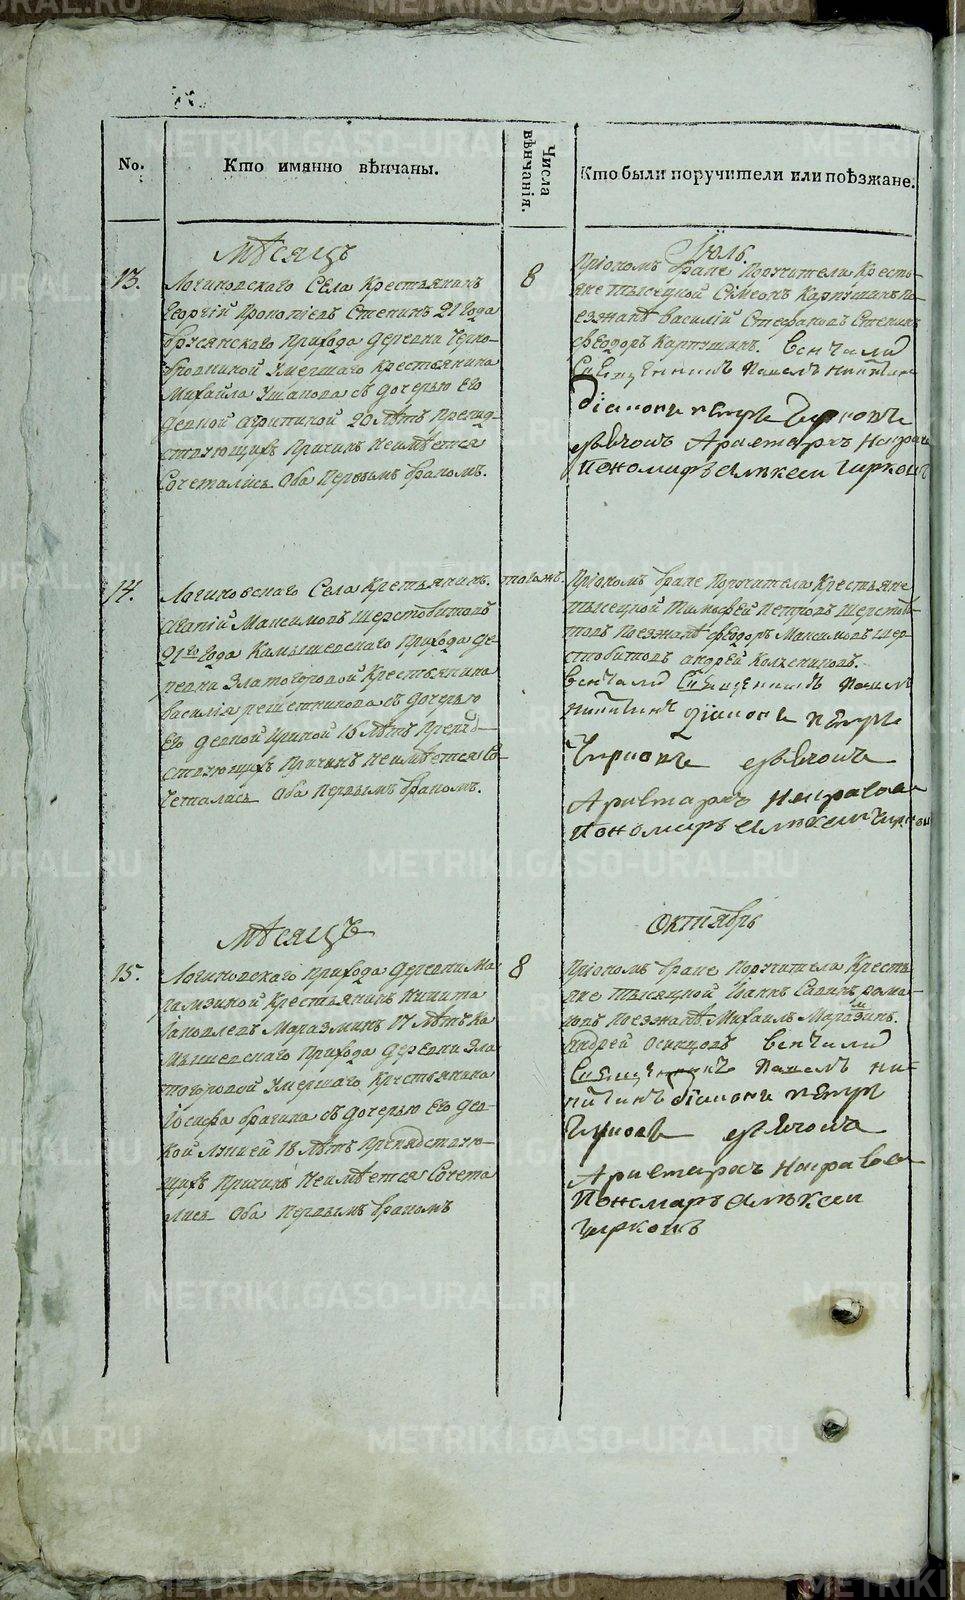 No.
Кто имянно вѣнчаны.
Числа вѣнчанія.
Кто были поручители или поѣзжане.
Мѣсяцъ
Іюль
13.
Логиновскаго Села Крестьянинъ
Георгій Прокопіевъ Степинъ 21 года
Брусянскаго Прихода деревни Черно-
бровкиной Умершаго Крестьянина
Михайла Ушакова съ дочерью Его
девкой Агрипиной 20 лѣтъ Препяд-
ствующихъ Причинъ Неимѣется
Сочетались Оба Первымъ бракомъ.
8
Пріономъ браке Поручители Кресть-
яне тысецкой Симеонъ Карпушинъ по-
езжанѣ Василій Стефановъ Степинъ
Феодоръ Карпушинъ. венчали
Священникъ Павелъ Никитинъ
діаконъ Петръ Чирковъ
дьячокъ Аристархъ
Пономарь Алексей Чирковъ
14.
Логиновскаго Села Крестьянинъ
Агапій Максимовъ Шерстобитовъ
21го года Камышевскаго Прихода де-
ревни Златогоровой Крестьянина
Василія Решетникова съ дочерью
Его девкой Ириной 16 лѣтъ Препяд-
ствующихъ Причинъ Неимѣется Со-
четались Оба Первымъ бракомъ.
тогожъ
Пріономъ браке Поручители Крестьяне
тысецкой Тимофей Петровъ Шерстоби-
товъ Поезжанѣ Феодоръ Максимовъ Шер-
стобитовъ Андрей Колясниковъ.
венчали Священникъ Павелъ
Никитинъ Діаконъ Петръ
Чирковъ дьячокъ
Аристархъ
Пономарь Алексей Чирковъ
Мѣсяцъ
Октябрь
15.
Логиновскаго Прихода деревни Ма-
рамзиной Крестьянинъ Никита
Іаковлевъ Марамзинъ 17 лѣтъ Ка-
мышевскаго Прихода деревни Зла-
тогоровой Умершаго Крестьянина
Іосифа Брагина съ дочерью Его дев-
кой 18 лѣтъ Препядствую-
щихъ Причинъ Неимѣется Сочета-
лись Оба Первымъ бракомъ
8
Пріономъ браке Поручители Кресть-
яне тысяцкой Іоаннъ Савинъ рома-
новъ Поезжанѣ Михаилъ
Андрей Осинцовъ венчали
Священникъ Павелъ Ни-
китинъ діаконъ Петръ
Чирковъ дьячокъ
Аристархъ
Пономарь Алексей
Чирковъ
METRIKI.GASO-URAL.RU